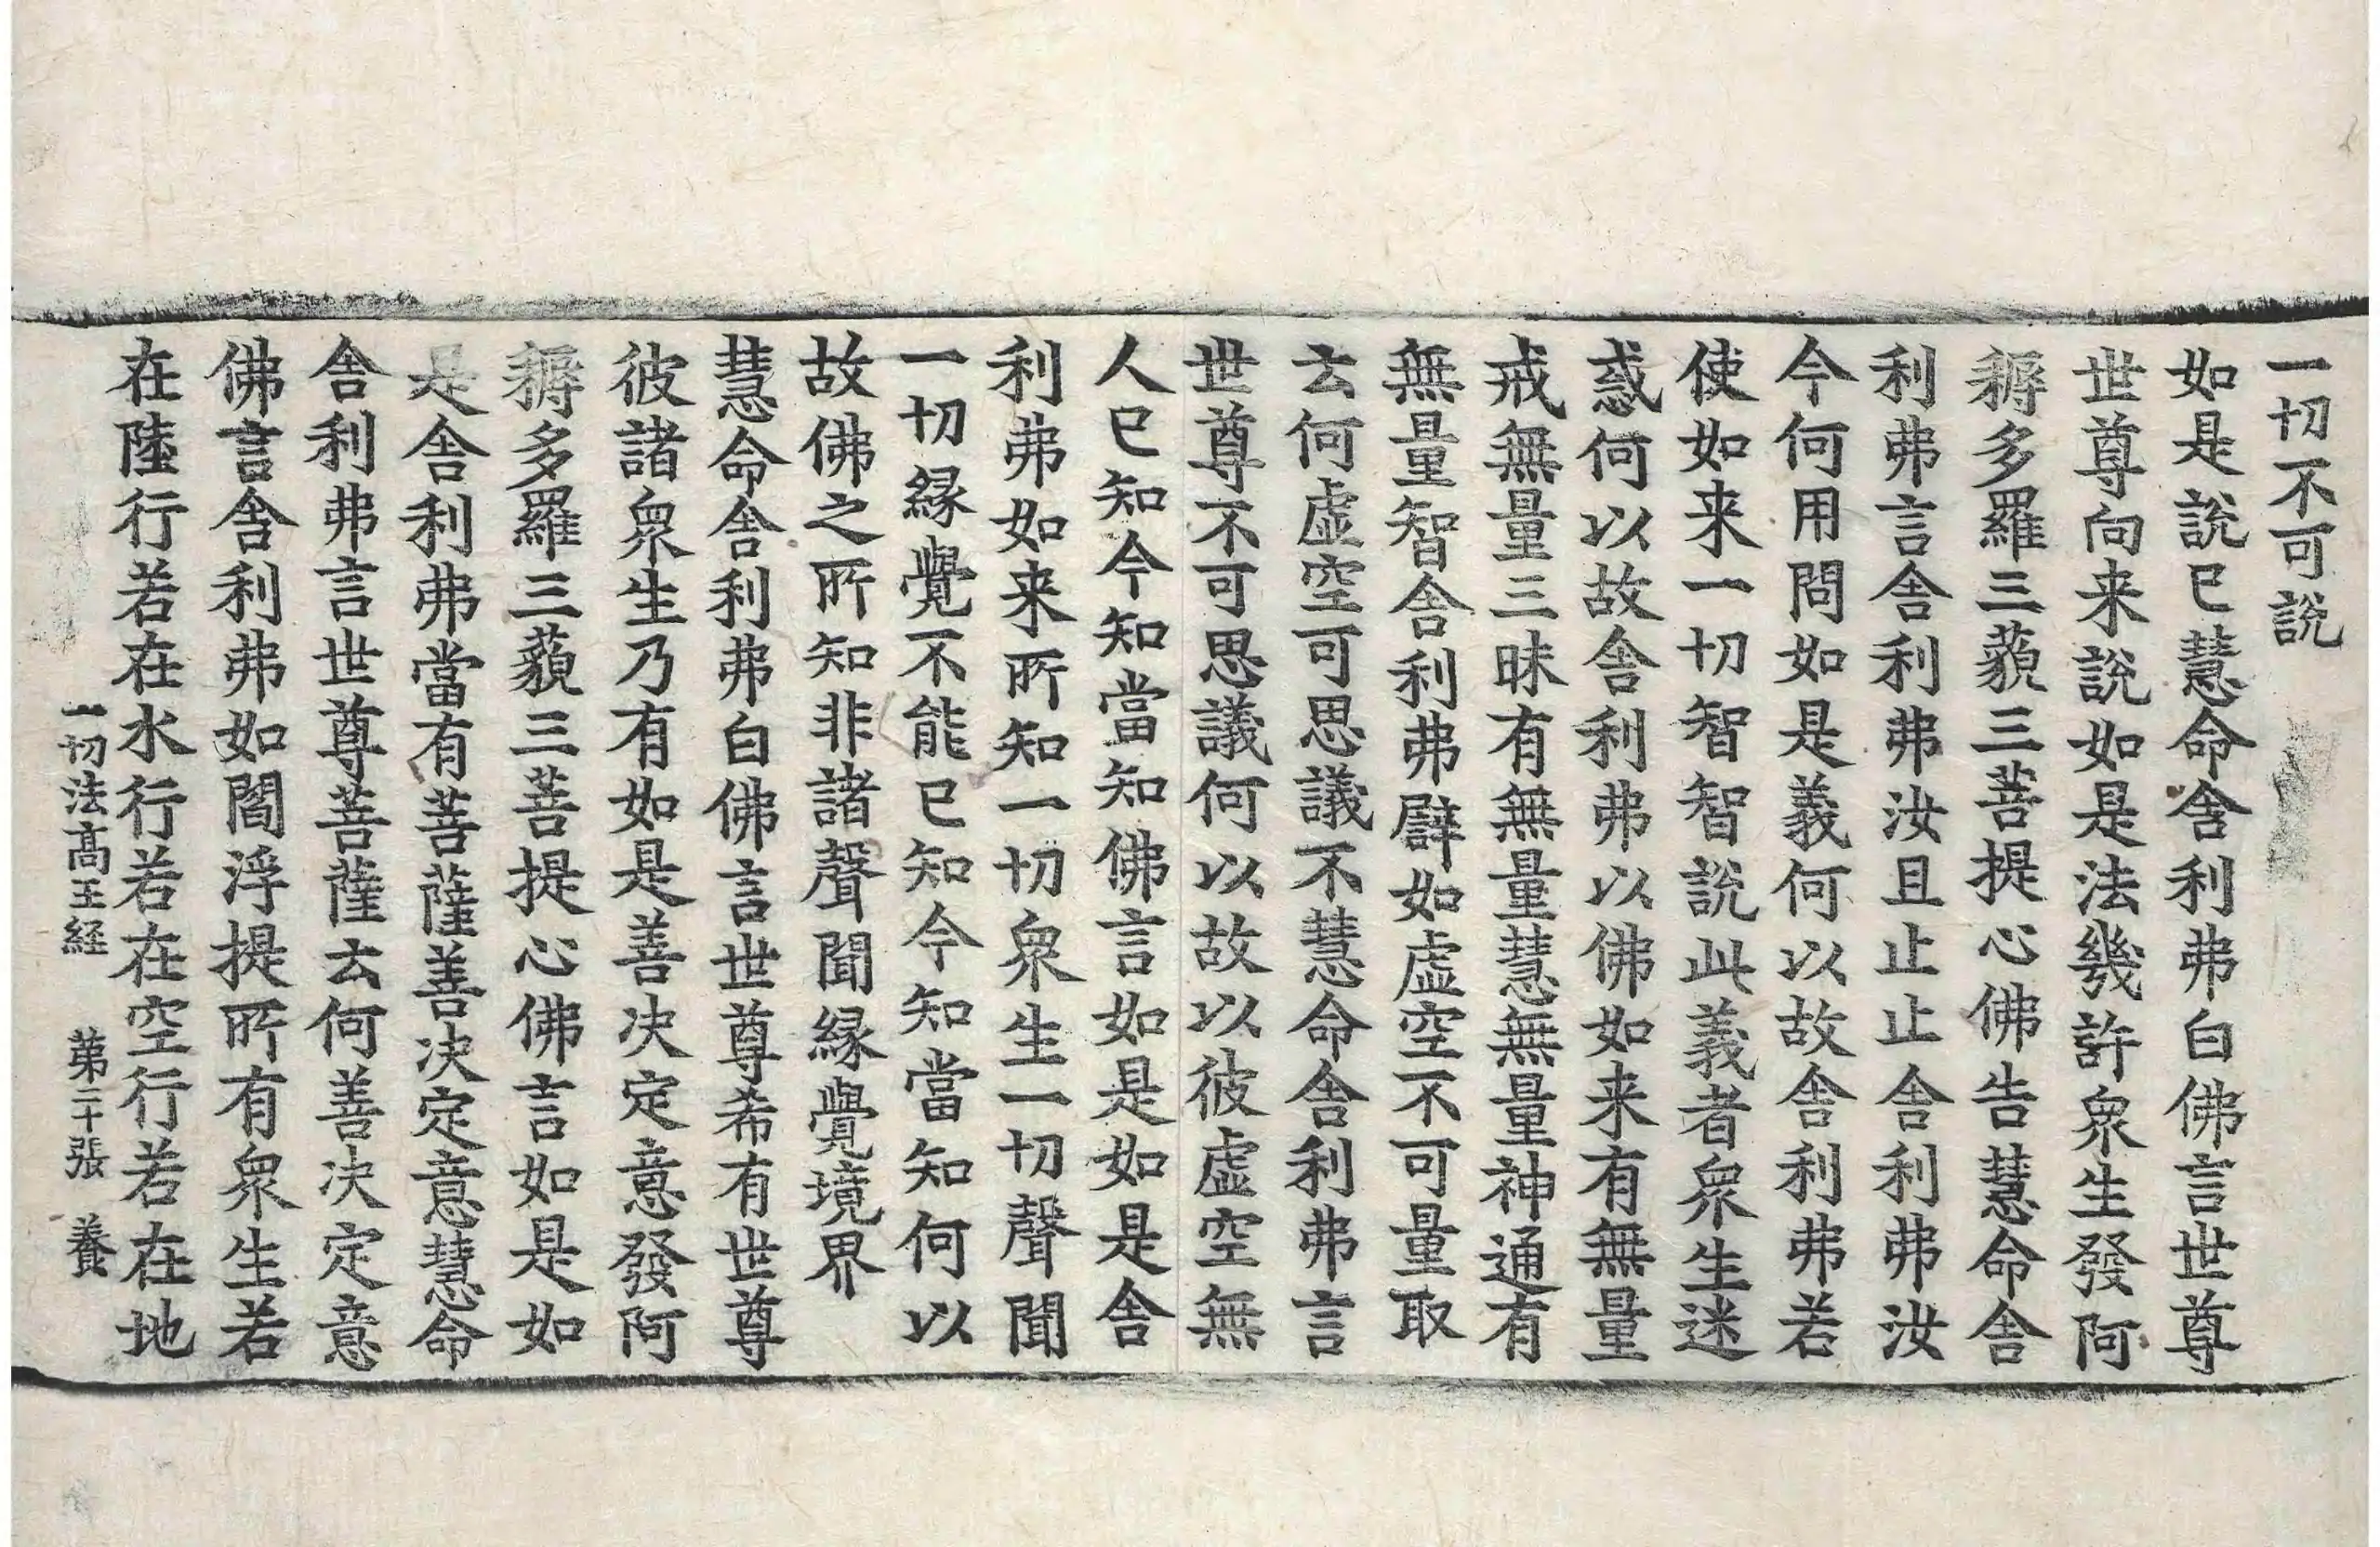 一切不可說
如是說已慧命舍利弗白佛言世尊
世尊向来說如是法幾許衆生發阿
耨多羅三藐三菩提心佛告慧命舍
利弗言舍利弗汝且止止舍利弗汝
今何用問如是義何以故舍利弗若
使如来一切智智說此義者衆生迷
惑何以故舍利弗以佛如来有無量
戒無量三昧有無量慧無量神通有
無量智舍利弗譬如虛空不可量取
云何虛空可思議不慧命舍利弗言
世尊不可思議何以故以彼虛空無
人已知今知當知佛言如是如是舍
利弗如来所知一切衆生一切聲聞
一切緣覺不能已知今知當知何以
故佛之所知非諸聲聞緣覺境界
慧命舍利弗白佛言世尊希有世尊
彼諸衆生乃有如是善决定意發阿
耨多羅三藐三菩提心佛言如是如
是舍利弗當有菩薩善决定意慧命
舍利弗言世尊菩薩云何善决定意
佛言舍利弗如閻浮提所有衆生若
在陸行若在水行若在空行若在地
一切法高王経 第二十張 養